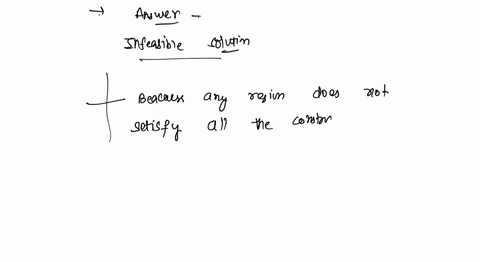 → Answer -
Infeasible solution
Beacuess any region does not
setisfy all the constrn